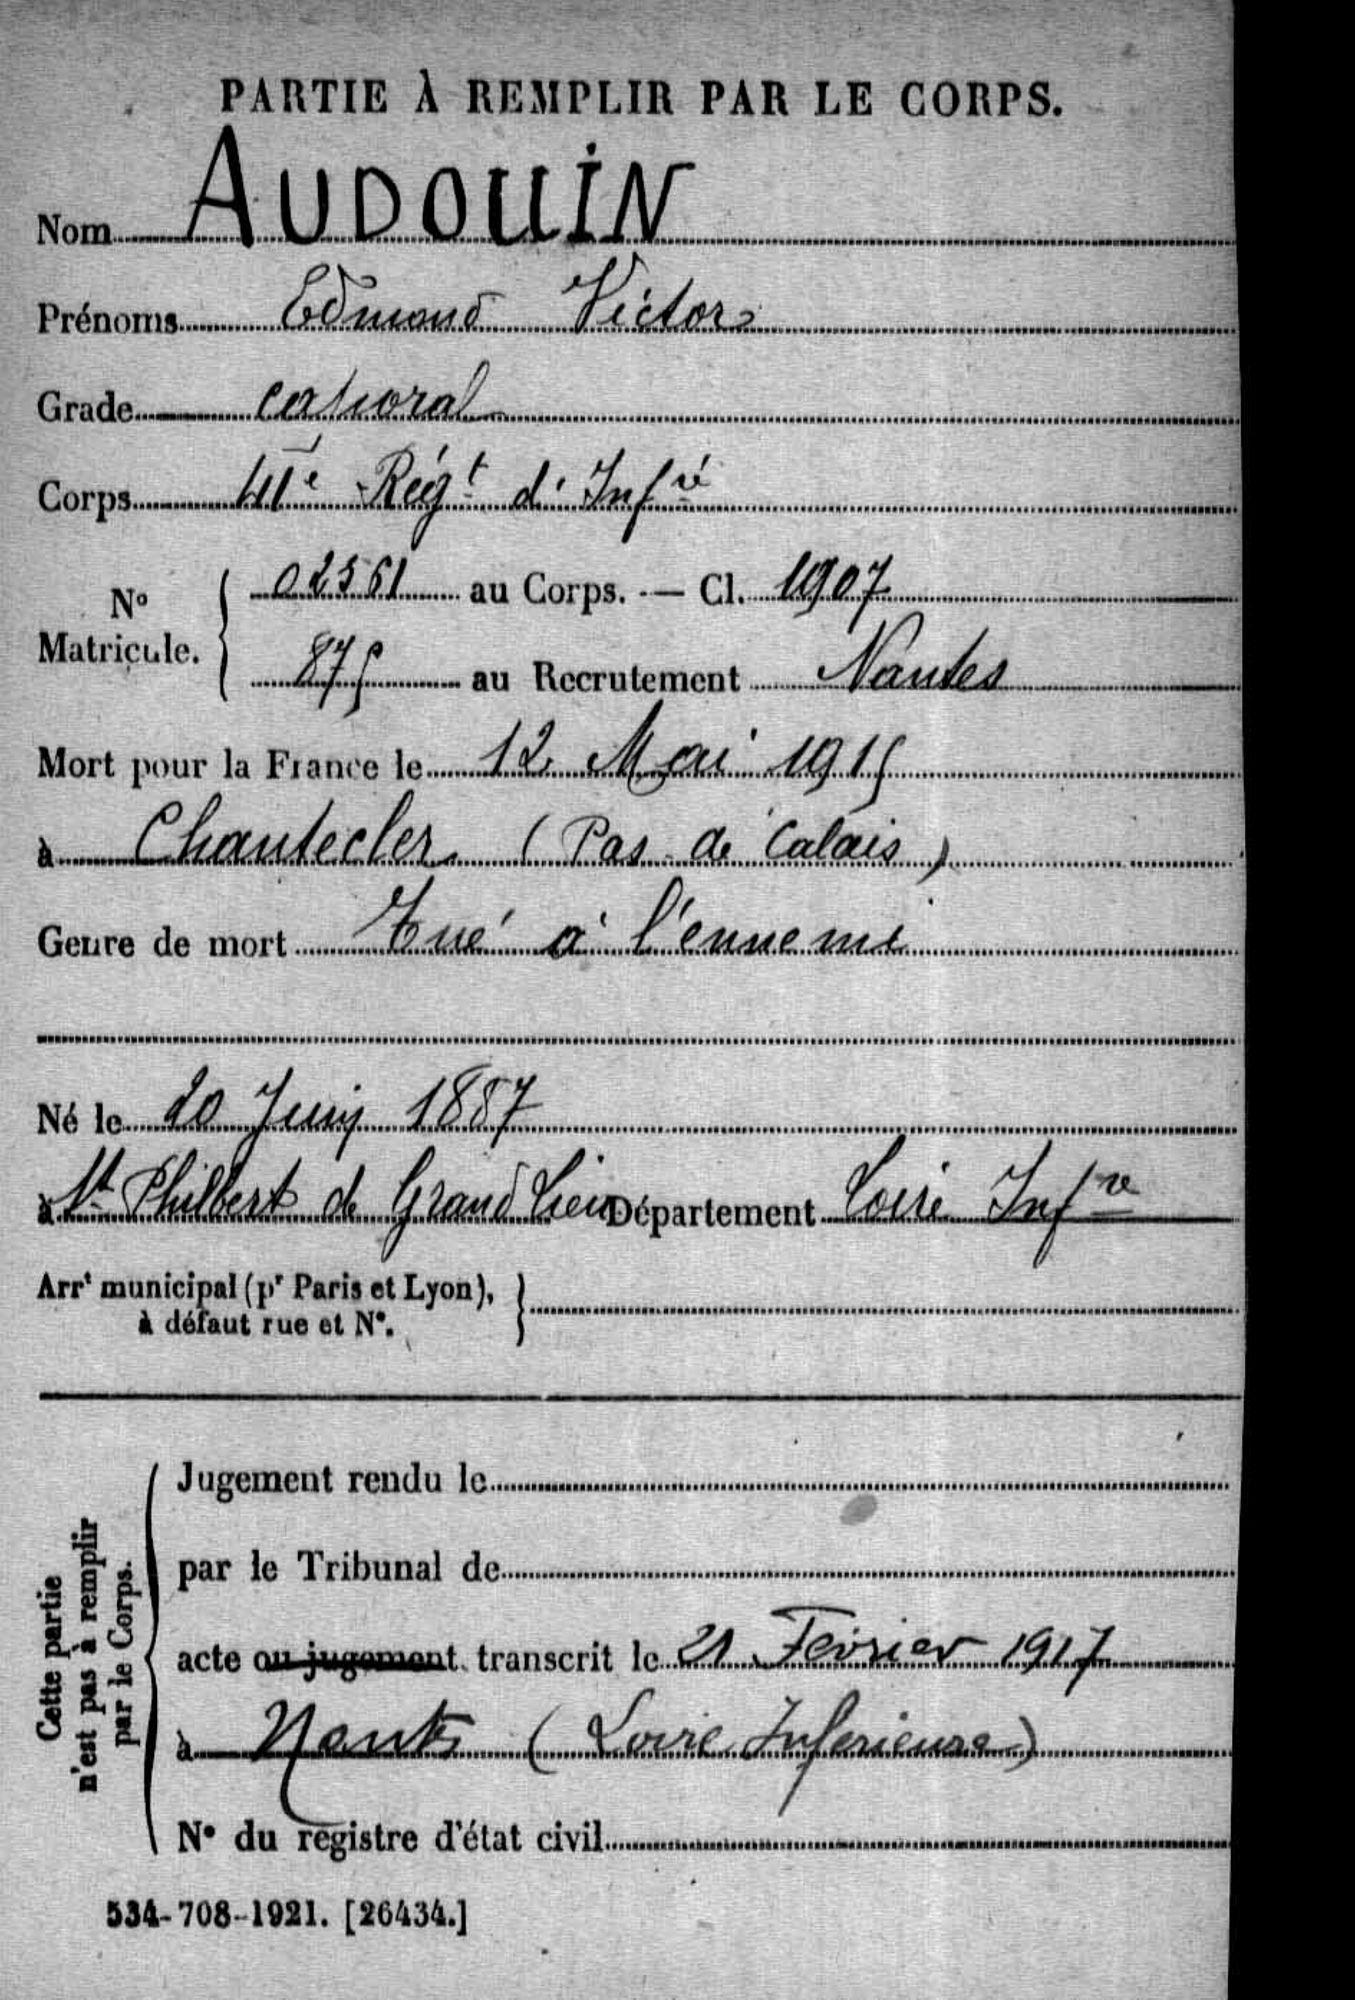 PARTIE À REMPLIR PAR LE CORPS.
Nom AUDOUIN
Prénoms Edmond Victor
Grade caporal
Corps 41e Régt d'Infie
No Matricule. { 02561 au Corps. — Cl. 1907
875 au Recrutement Nantes
Mort pour la France le 12 Mai 1915
à Chantecler (Pas de Calais)
Genre de mort Tué à l'ennemi
Né le 20 Juin 1887
à St Philbert de Grand Lieu Département Loire Infre
Arrt municipal (pr Paris et Lyon), }
à défaut rue et No.
Cette partie
n'est pas à remplir
par le Corps.
Jugement rendu le
par le Tribunal de
acte ou jugement transcrit le 21 Février 1917
à Nantes (Loire Inferieure)
No du registre d'état civil
534-708-1921. [26434.]